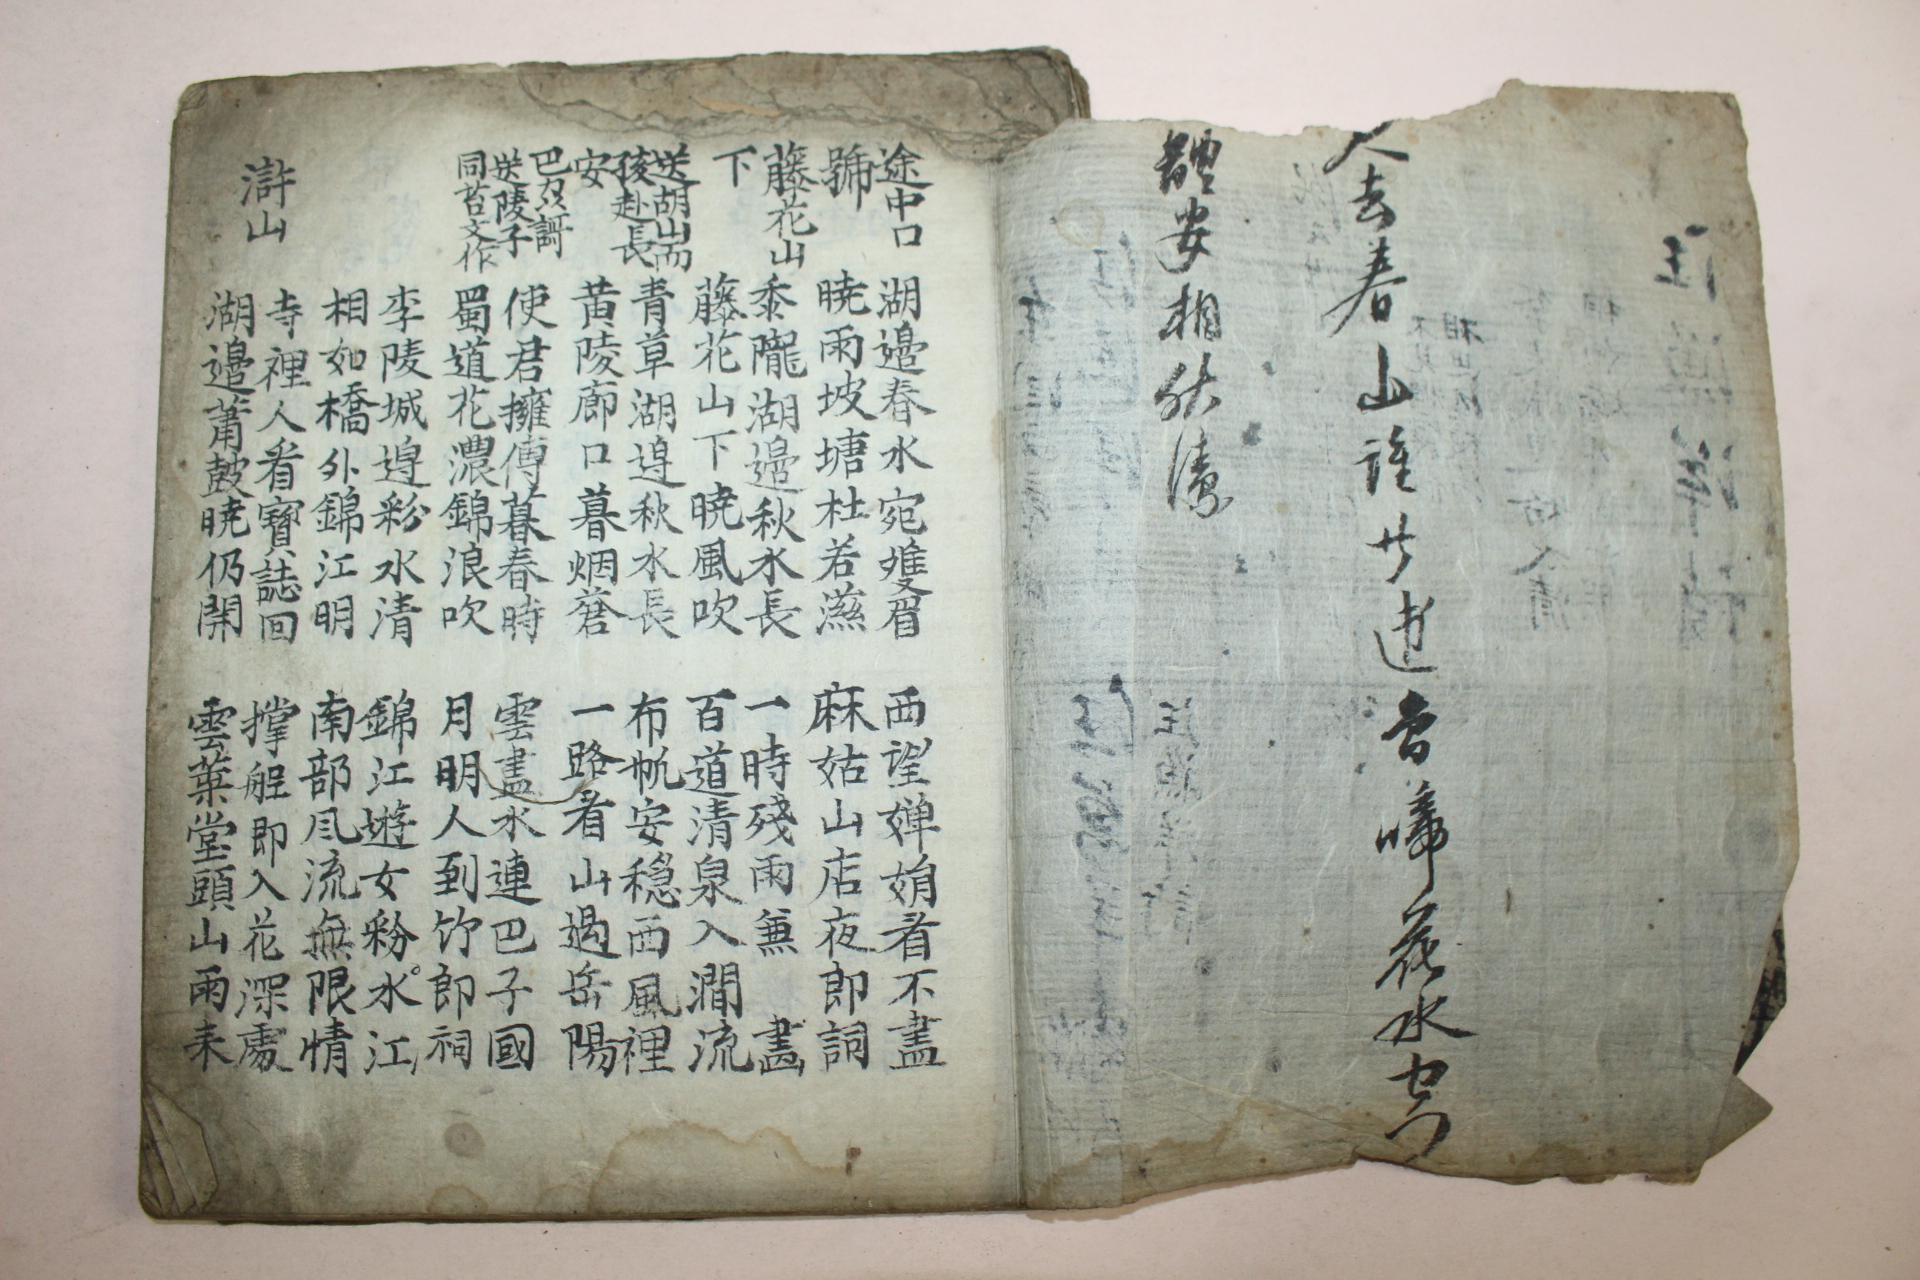 人去春山誰共遊鳥啼花水空
體安相伏
途中口
號
湖邊春水宛雙眉
西望嬋娟看不盡
曉雨坡塘杜若滋
麻姑山店夜郎詞
藤花山
下
黍隴湖邊秋水長
一時殘雨兼 盡
藤花山下曉風吹
百道清泉入澗流
送胡山而
孩赴長
安
青草湖邊秋水長
布帆安穩西風裡
黃陵廊口暮烟蒼
一路看山過岳陽
送陵子
同苔文作
使君擁傳暮春時
雲盡水連巴子國
蜀道花濃錦浪吹
月明人到竹郎祠
李陵城邊彩水清
錦江遊女粉水江
相如橋外錦江明
南部風流無限情
寺裡人看寶誌回
撑艇即入花深處
滸山
湖邊蕭皷曉仍開
雲葉堂頭山雨来